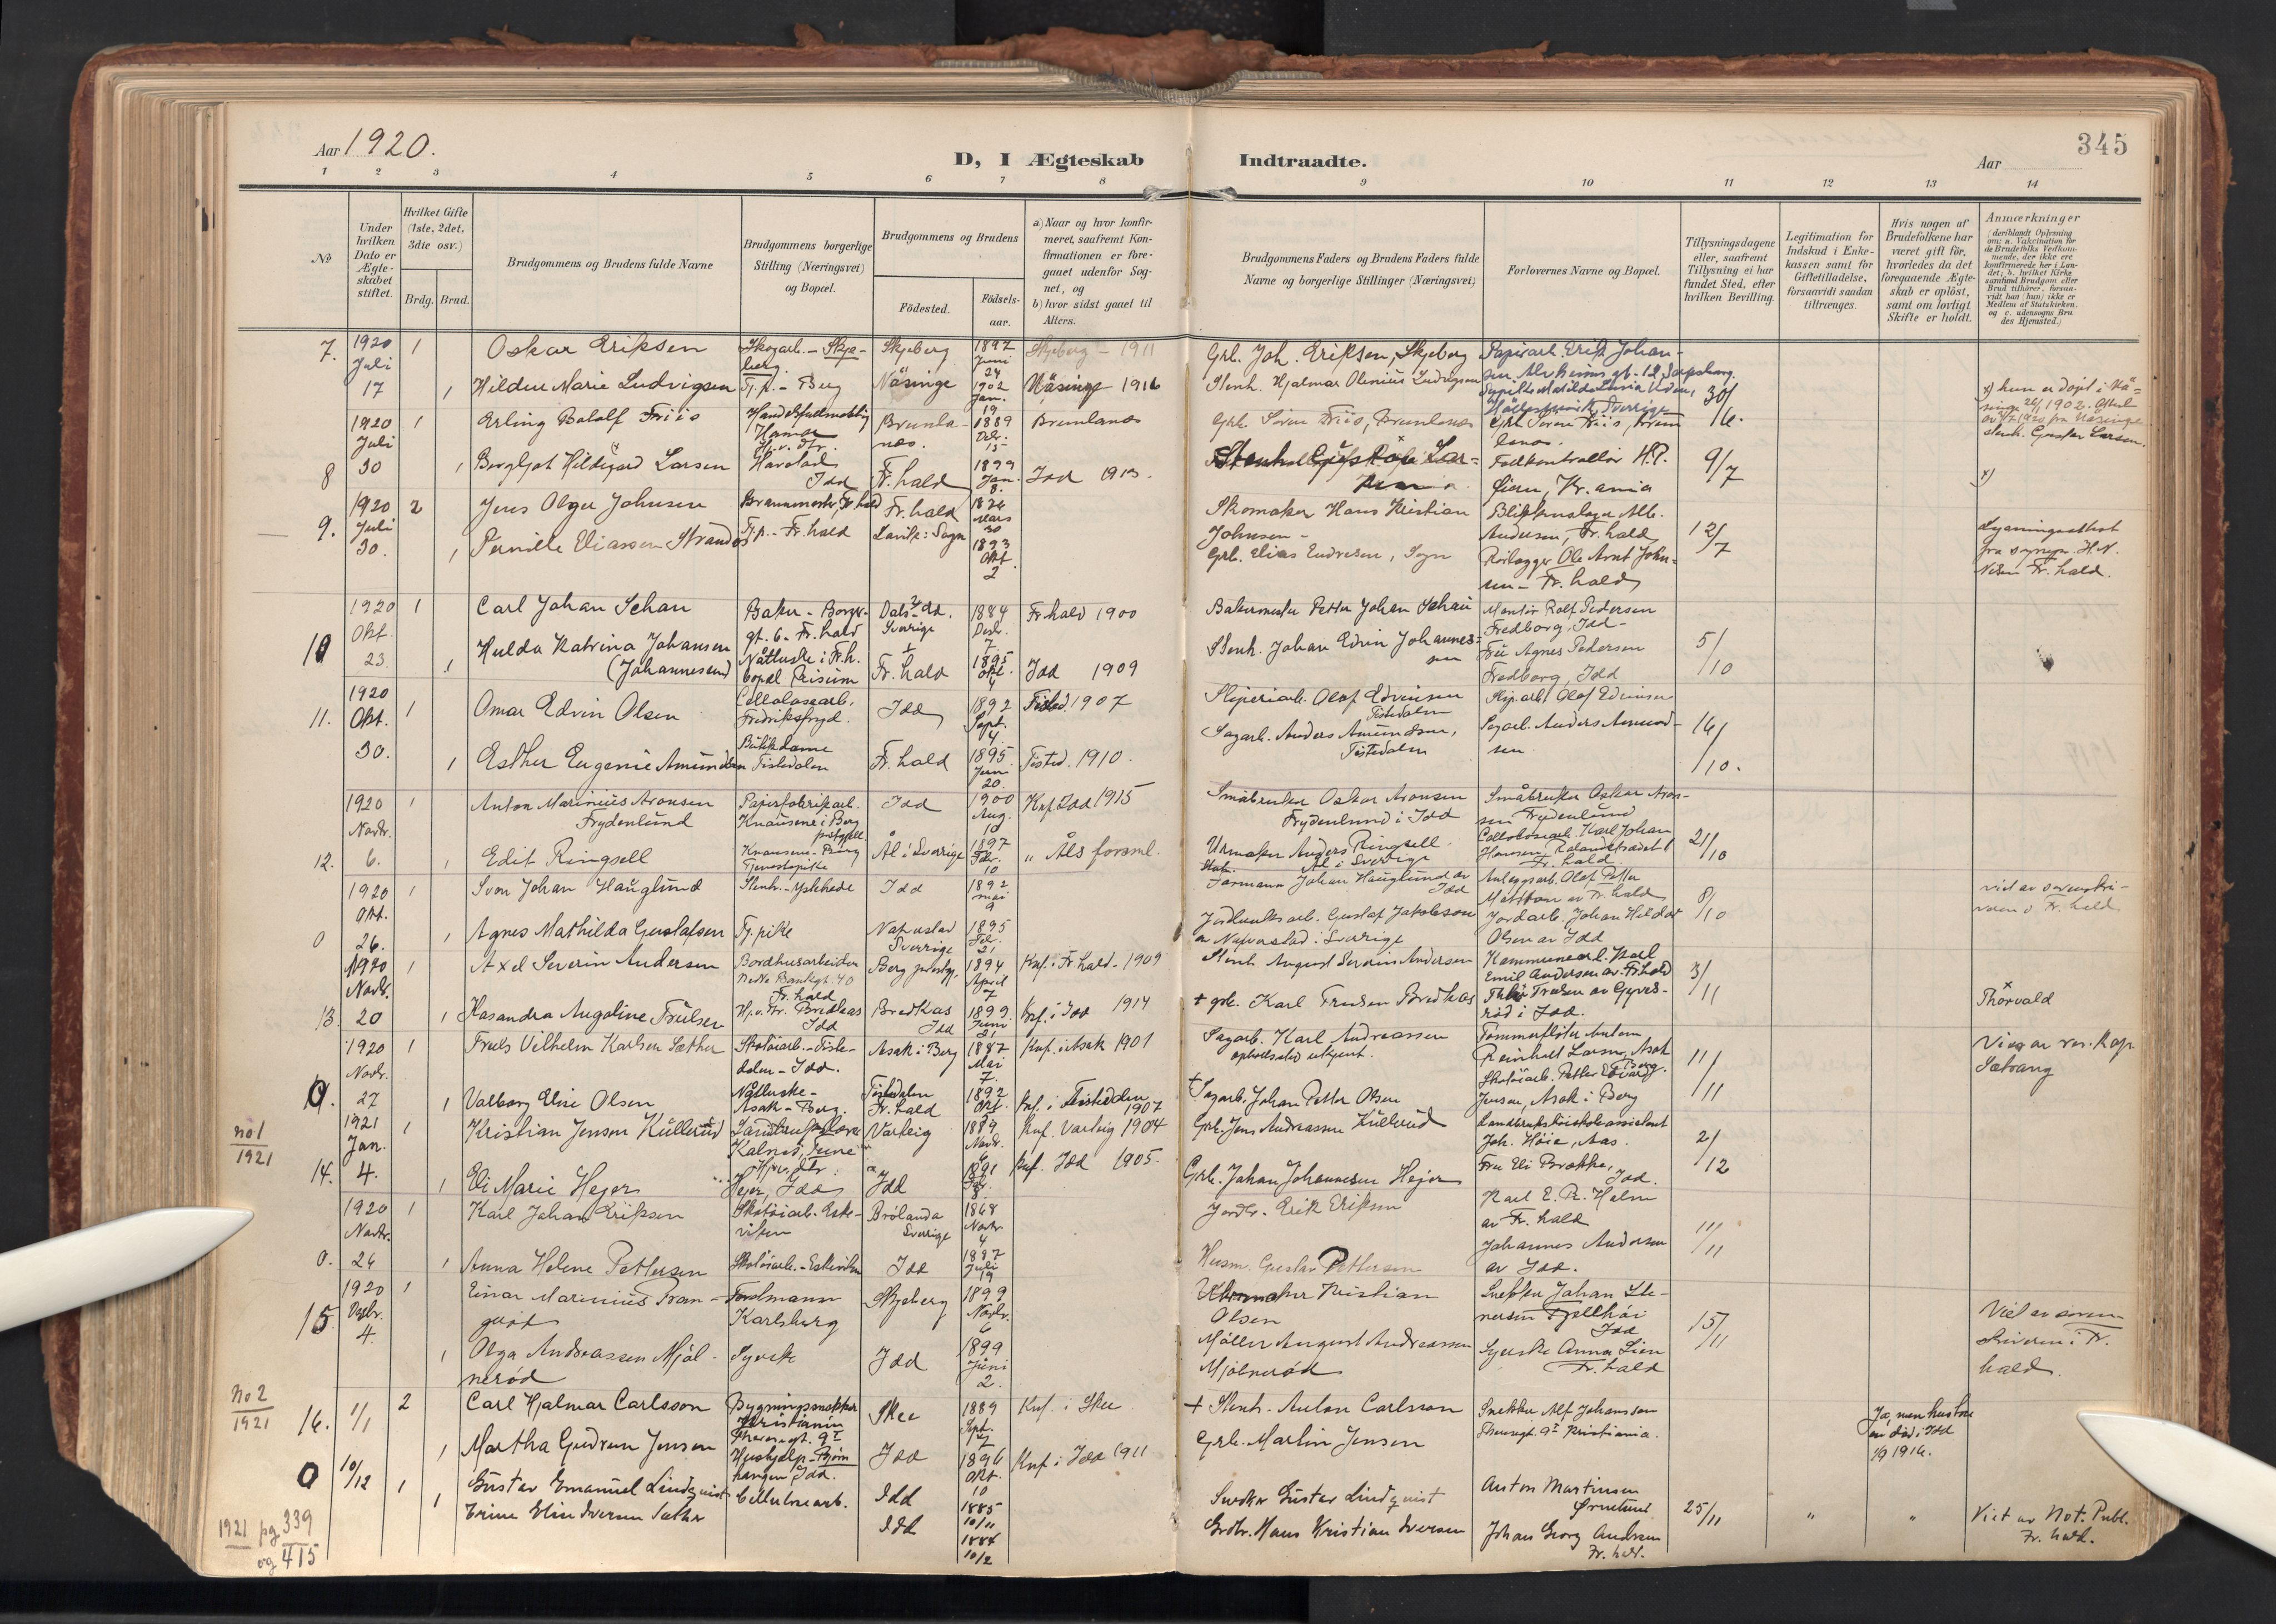 Aar 1920.
D, I Ægteskab Indtraadte.
Aar
345
1 2 3 4 5 6 7 8 9 10 11 12 13 14
No
Under hvilken Dato er Ægteskabet stiftet.
Hvilket Gifte (1ste, 2det, 3die osv.)
Brdg. Brud.
Brudgommens og Brudens fulde Navne
Brudgommens borgerlige Stilling (Næringsvei) og Bopæl.
Brudgommens og Brudens
Födested.
Födselsaar.
a) Naar og hvor konfirmeret, saafremt Konfirmationen er foregaaet udenfor Sognet, og
b) hvor sidst gaaet til Alters.
Brudgommens Faders og Brudens Faders fulde Navne og borgerlige Stillinger (Næringsvei)
Forlovernes Navne og Bopæl.
Tillysningsdagene eller, saafremt Tillysning ei har fundet Sted, efter hvilken Bevilling.
Legitimation for Indskud i Enkekassen samt for Giftetilladelse, forsaavidt saadan tiltrænges.
Hvis nogen af Brudefolkene har været gift för, hvorledes da det foregaaende Ægteskab er oplöst, samt om lovligt Skifte er holdt.
Anmærkninger
7. 1920 Juli 17
1 Oskar Eriksen Skogarb. - Skjeberg. Skjeberg 1897 Juni 24 Skjeberg - 1911 Grb. Joh. Eriksen, Skjeberg
1 Hildur Marie Ludvigsen Tj.p. - Berg Näsinge 1902 Jan. 19 Näsinge 1916 Stenh. Hjalmar Olenius Ludvigsen 30/6.
8 1920 Juli 30
1 Erling Botolf Friis Hamar Brunlanæs. 1889 Brunlanæs Grb. Sören Friis, Brunlanæs
1 Borghjot Hildegard Larsen Idd Fr.hald 1899 Jan. 8. Idd 1913. Fr. ania 9/7
x) hun er döpt i Näsinge
1902.
stenh. Gustav Larsen.
9. 1920 Juli 30.
2 Jens Olger Johnsen Fr.hald Fr.hald mars 30 Skomaker Hans Kristian Johnsen - Blikkenslager Alb. Andersen, Fr.hald 12/7
1 Pernille Eliassen Strand Tj.p. - Fr.hald Lavik: Sogn 1893 Okt. 2 Grb. Elias Endresen, Sogn Rörlegger Ole Arnt Johnsen - Fr.hald
Lysningsattest fra sogn.pr. H.N. Fr.hald.
10 1920 Okt. 23.
1 Carl Johan Schau Baker - Borgergt. 6. Fr.hald Sverige 1884 Desbr. 7. Fr.hald 1900 Bakermester Petter Johan Schau Montör Rolf Pedersen Fredborg, Idd -
1 Hulda Katrina Johansen (Johannesen) Nåtlerske i Fr.h. bopæl Risum Fr.hald 1895 Okt. 4 Idd 1909 Stenh. Johan Edvin Johannessen Fru Agnes Pedersen Fredborg, Idd 5/10
11. 1920 Okt. 30.
1 Omar Edvin Olsen Cellulosearb. Fredriksfryd. Idd 1892 Sept. 4. Tisted. 1907 Sliperiarb. Olaf Edvinsen Tistedalen Slip.arb. Olaf Edvinsen
1 Esther Eugenie Amundsen Butikdame Tistedalen Fr.hald 1895 Juni 20. Tisted. 1910. Sagarb. Anders Amundsen, Tistedalen Sagarb. Anders Amundsen 16/10.
12. 1920 Novbr. 6.
1 Anton Marinius Aronsen Frydenlund Papirfabrikarb. Knausene i Berg Idd 1900 Aug. 10 Knf. Idd 1915 Småbruker Oskar Aronsen Frydenlund i Idd Småbruker Oskar Aronsen Frydenlund
1 Edit Ringsell Knausene - Berg Tjenestepike Ål i Sverige 1897 Febr. 10 " Åls forsaml. Urmaker Anders Ringsell Ål i Sverige Cellulosearb. Karl Johan Hansen, Fr.hald. 21/10
0 1920 Okt. 26.
1 Ivar Johan Hauglund Stenh. - Ystehede Idd 1892 mai 9 Formann Johan Hauglund av Idd Anleggsarb. Olaf Petter av Fr.hald 8/10
1 Agnes Mathilda Gustafsen Tj.pike Naverstad Sverige 1895 Feb. 21 Jordbruksarb. Gustaf Jakobsson av Naverstad i Sverige Jordarb. Johan Hilder Olsen av Idd
viet av sorenskriveren i Fr.hald
13. 1920 Novbr. 20
1 Axel Severin Andersen Bordhusarbeider Nedre Bankgt. 40 Fr.hald Berg prestegj. 1894 April 7 Knf. i Fr.hald - 1909 Stenh. August Severin Andersen Kommunearb. Karl Emil Andersen av Fr.hald 3/11
1 Kasandra Augoline Trulsen Hj.v.Fr. Bredkas Idd Bredkas Idd 1899. Juni 21 Knf. i Idd 1914 + grb. Karl Trulsen Bredkas Thv. Trulsen av Gjeversröd i Idd.
x Thorvald
0. 1920 Novbr. 27
1 Truls Vilhelm Karlsen Sæther Skotöiarb. - Tistedalen - Idd. Asak i Berg 1887 Mai 7. Knf. i Asak 1901 Sagarb. Karl Andreassen opholdssted ukjent. Tömmerfløter Anton Reinholt Larsen, Asak Berg.
1 Valborg Elise Olsen Nåtlerske - Asak - Berg. Tistedalen Fr.hald 1892 Okt. Knf. i Tistedalen 1907 + Sagarb. Johan Petter Olsen Skotöiarb. Petter Edvard Jensen, Asak i Berg 11/11
Viet av res. Kap. Sætrang
no 1 1921
14. 1921 Jan. 4.
1 Kristian Jensen Kullerud Kalnes, Tune Varteig 1889 Novbr. 6 Knf. Varteig 1904 Grb. Jens Andreassen Kullerud Landbrukshöiskoleassistent Joh. Höie, Aas.
1 Eli Marie Hejer Hejer, Idd Idd 1891 Knf. Idd 1905. Grb. Johan Johannesen Hejer Fru Eli Brække, Idd. 2/12
0. 1920 Novbr. 24
1 Karl Johan Eriksen Skotöiarb. Eskeviken Brölanda Sverige 1868 Novbr. 4 Jordbr. Erik Eriksen Karl E. R. Holm av Fr.hald
1 Anna Helene Pettersen Skotöiarb. - Eskeviken Idd 1887 Juli 19 Husm. Gustav Pettersen Johannes Andersen av Idd. 11/11
15. 1920 Desbr. 4.
1 Einar Marinius Tran- Karlsberg Skjeberg 1899 Novbr. 6 Kristian Olsen Snekker Johan Stenersen Fjellhöi Idd 15/11
1 Olga Andreassen Mjölneröd Syerske Idd 1899 Juni 2. Möller August Andreassen Mjölneröd Syerske Anna Lien Fr.hald
Viet av sorenskriveren i Fr.hald.
No 2 1921
16. 1/1
2 Carl Hjalmar Carlsson Bygningssnekker Kristiania Theresegt. 9 Skee 1889 Sept. 7 Knf. i Skee + Stenh. Anton Carlsson Snekker Alf Johansson Theresegt. 9 Kristiania.
1 Martha Gudrun Jensen Idd 1896 Okt. 10 Knf. i Idd 1911 Grb. Martin Jensen
Ja, men hustru en död i Idd 1/9 1916.
0 10/12
1 Gustav Emanuel Lindqvist Cellulosearb. Idd 1885 10/11 Snekker Gustav Lindqvist Anton Martinsen Ørnelund 25/11 " "
1 Trine Elise Iversen Sæther Idd 1884 10/2 Grdbr. Hans Kristian Iversen Johan Georg Andersen Fr.hald.
Viet av Not. Publ. Fr.hald.
1921 pg 339 og 415